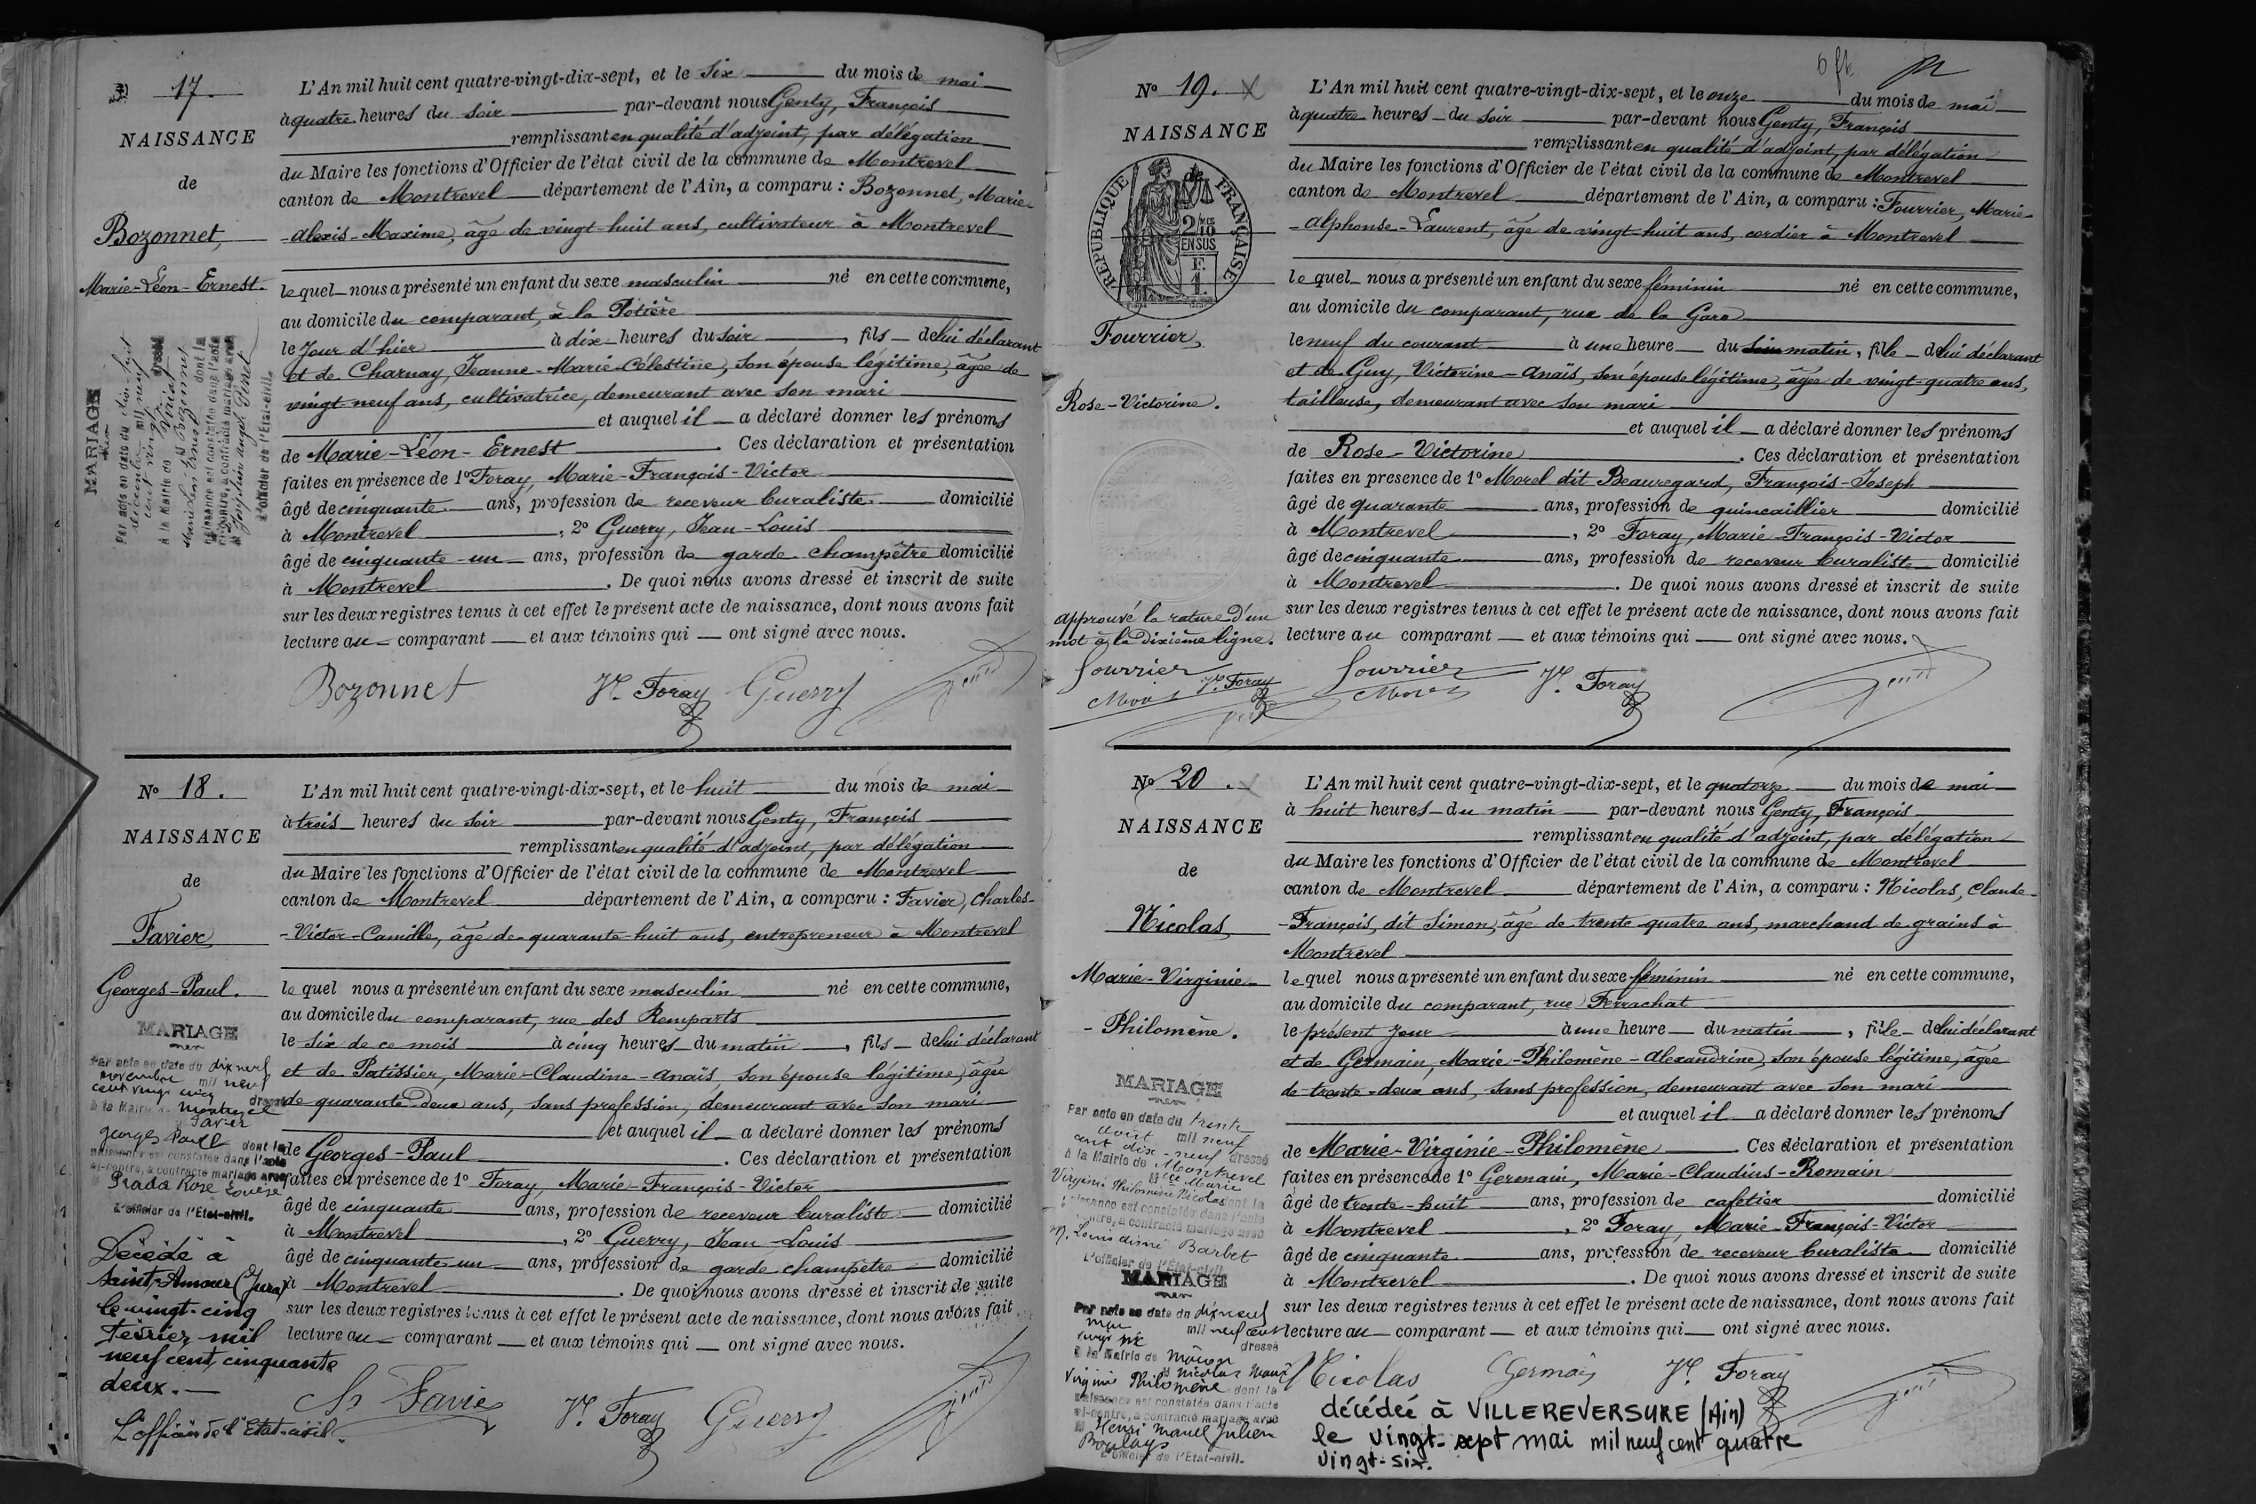 17.
NAISSANCE
de
Bozonnet,
Marie-Léon-Ernest.
MARIAGE
Par acte en date du dix-huit
décembre mil neuf
cent vingt
à la Mairie de dressé
Marie Léon Ernest Bozonnet dont la
naissance est constatée dans l'acte
ci-contre, a contracté mariage avec
L'officier de l'Etat-civil.
L'An mil huit cent quatre-vingt-dix-sept, et le six du mois de mai
à quatre heures du soir par-devant nous Genty, François
remplissant en qualité d'adjoint, par délégation
du Maire les fonctions d'Officier de l'état civil de la commune de Montrevel
canton de Montrevel département de l'Ain, a comparu : Bozonnet, Marie-
-Alexis-Maxime, âgé de vingt-huit ans, cultivateur à Montrevel
lequel nous a présenté un enfant du sexe masculin né en cette commune,
au domicile du comparant, à la Potière
le jour d'hier à dix heures du soir, fils de lui déclarant
et de Charnay, Jeanne-Marie-Célestine, son épouse légitime, âgée de
vingt-neuf ans, cultivatrice, demeurant avec son mari
et auquel il a déclaré donner les prénoms
de Marie-Léon-Ernest. Ces déclaration et présentation
faites en présence de 1º Foray, Marie-François-Victor
âgé de cinquante ans, profession de receveur buraliste domicilié
à Montrevel, 2º Guerry, Jean-Louis
âgé de cinquante-un ans, profession de garde champêtre domicilié
à Montrevel. De quoi nous avons dressé et inscrit de suite
sur les deux registres tenus à cet effet le présent acte de naissance, dont nous avons fait
lecture au comparant et aux témoins qui ont signé avec nous.
Bozonnet Vr Foray Guerry
Nº 18.
NAISSANCE
de
Favier
Georges-Paul.
MARIAGE
Par acte en date du dix neuf
novembre mil neuf
cent vingt cinq dressé
à la Mairie de Montrevel
Favier
Georges Paul dont la
naissance est constatée dans l'acte
ci-contre, a contracté mariage avec
Prada Rose Louise
L'officier de l'Etat-civil.
Décédé à
Saint-Amour (Jura)
le vingt-cinq
Février mil
neuf cent cinquante
deux.
L'officier de l'Etat-civil.
L'An mil huit cent quatre-vingt-dix-sept, et le huit du mois de mai
à trois heures du soir par-devant nous Genty, François
remplissant en qualité d'adjoint, par délégation
du Maire les fonctions d'Officier de l'état civil de la commune de Montrevel
canton de Montrevel département de l'Ain, a comparu : Favier, Charles-
-Victor-Camille, âgé de quarante-huit ans, entrepreneur à Montrevel
lequel nous a présenté un enfant du sexe masculin né en cette commune,
au domicile du comparant, rue des Remparts
le six de ce mois à cinq heures du matin, fils de lui déclarant
et de Patissier, Marie-Claudine-Anaïs, son épouse légitime, âgée
de quarante-deux ans, sans profession, demeurant avec son mari
et auquel il a déclaré donner les prénoms
de Georges-Paul. Ces déclaration et présentation
faites en présence de 1º Foray, Marie-François-Victor
âgé de cinquante ans, profession de receveur buraliste domicilié
à Montrevel, 2º Guerry, Jean-Louis
âgé de cinquante-un ans, profession de garde champêtre domicilié
à Montrevel. De quoi nous avons dressé et inscrit de suite
sur les deux registres tenus à cet effet le présent acte de naissance, dont nous avons fait
lecture au comparant et aux témoins qui ont signé avec nous.
Ch Favier Vr Foray Guerry
Nº 19.
NAISSANCE
de
RÉPUBLIQUE FRANÇAISE
2/10 EN SUS
F. 1.
Fourrier,
Rose-Victorine.
approuvé la rature d'un
mot à la dixième ligne.
Fourrier
Morel Vr Foray
L'An mil huit cent quatre-vingt-dix-sept, et le onze du mois de mai
à quatre heures du soir par-devant nous Genty, François
remplissant en qualité d'adjoint, par délégation
du Maire les fonctions d'Officier de l'état civil de la commune de Montrevel
canton de Montrevel département de l'Ain, a comparu : Fourrier, Marie-
-Alphonse-Laurent, âgé de vingt-huit ans, cordier à Montrevel
lequel nous a présenté un enfant du sexe féminin né en cette commune,
au domicile du comparant, rue de la Gare
le neuf du courant à une heure du soir matin, fille de lui déclarant
et de Guy, Victorine-Anaïs, son épouse légitime, âgée de vingt-quatre ans,
tailleuse, demeurant avec son mari
et auquel il a déclaré donner les prénoms
de Rose-Victorine. Ces déclaration et présentation
faites en presence de 1º Morel dit Beauregard, François-Joseph
âgé de quarante ans, profession de quincaillier domicilié
à Montrevel, 2º Foray, Marie-François-Victor
âgé de cinquante ans, profession de receveur buraliste domicilié
à Montrevel. De quoi nous avons dressé et inscrit de suite
sur les deux registres tenus à cet effet le présent acte de naissance, dont nous avons fait
lecture au comparant et aux témoins qui ont signé avec nous.
Fourrier Morel Vr Foray
Nº 20.
NAISSANCE
de
Nicolas
Marie-Virginie-
-Philomène.
MARIAGE
Par acte en date du trente
août mil neuf
cent dix-neuf dressé
à la Mairie de Montrevel
Marie
Virginie Philomène Nicolas dont la
naissance est constatée dans l'acte
ci-contre, a contracté mariage avec
Barbet
L'officier de l'Etat-civil.
MARIAGE
Par acte en date du dix neuf
mai mil neuf cent
vingt six dressé
à la Mairie de Mâcon
Nicolas Marie
Virginie Philomène dont la
naissance est constatée dans l'acte
ci-contre, a contracté mariage avec
Henri Marcel Julien
L'officier de l'Etat-civil.
L'An mil huit cent quatre-vingt-dix-sept, et le quatorze du mois de mai
à huit heures du matin par-devant nous Genty, François
remplissant en qualité d'adjoint, par délégation
du Maire les fonctions d'Officier de l'état civil de la commune de Montrevel
canton de Montrevel département de l'Ain, a comparu : Nicolas, Claude-
-François, dit Simon, âgé de trente-quatre ans, marchand de grains à
Montrevel
lequel nous a présenté un enfant du sexe féminin né en cette commune,
au domicile du comparant, rue Ferrachat
le présent jour à une heure du matin, fille de lui déclarant
et de Germain, Marie-Philomène-Alexandrine, son épouse légitime, âgée
de trente-deux ans, sans profession, demeurant avec son mari
et auquel il a déclaré donner les prénoms
de Marie-Virginie-Philomène Ces déclaration et présentation
faites en présence de 1º Germain, Marie-Claudius-Romain
âgé de trente-huit ans, profession de cafetier domicilié
à Montrevel, 2º Foray, Marie-François-Victor
âgé de cinquante ans, profession de receveur buraliste domicilié
à Montrevel. De quoi nous avons dressé et inscrit de suite
sur les deux registres tenus à cet effet le présent acte de naissance, dont nous avons fait
lecture au comparant et aux témoins qui ont signé avec nous.
Nicolas Germain Vr Foray
décédée à VILLEREVERSURE (Ain)
le vingt-sept mai mil neuf cent quatre
vingt-six.